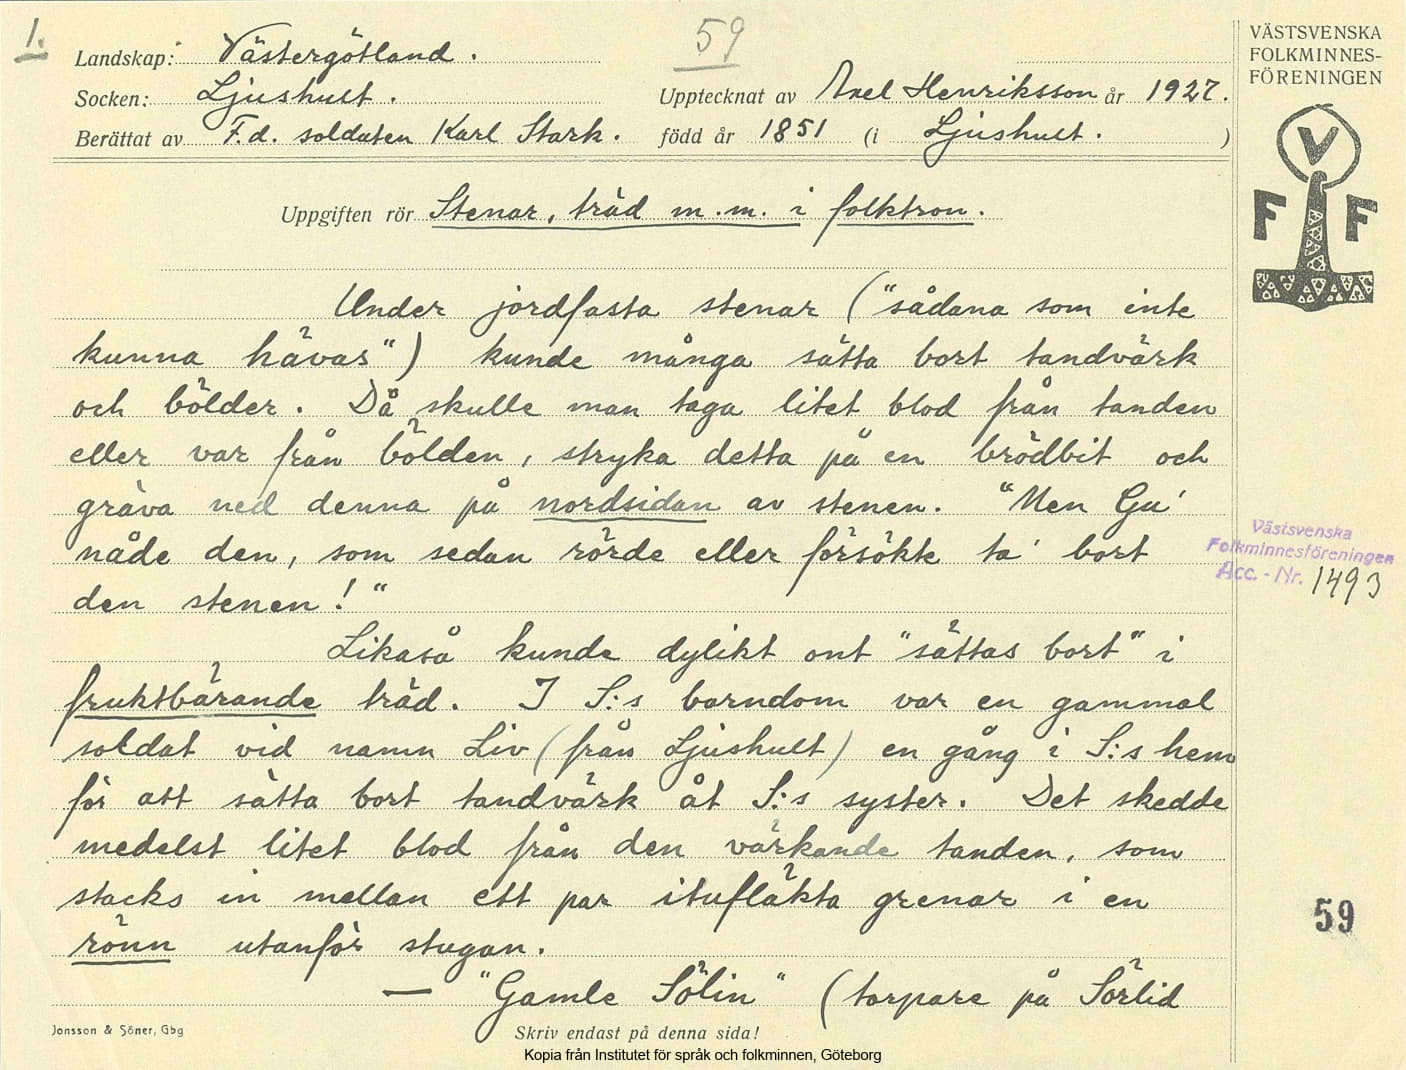 1.
59
Landskap: Västergötland.
Socken: Ljushult.
Upptecknat av Axel Henriksson år 1927.
Berättat av F.d. soldaten Karl Stark. född år 1851 (i Ljushult. )
Uppgiften rör Stenar, träd m.m. i folktron.
VÄSTSVENSKA
FOLKMINNES-
FÖRENINGEN
V
F F
Under jordfasta stenar ("sådana som inte
kunna hävas") kunde många sätta bort tandvärk
och bölder. Då skulle man taga litet blod från tanden
eller var från bölden, stryka detta på en brödbit och
gräva ned denna på nordsidan av stenen. "Men Gu'
nåde den, som sedan rörde eller försökte ta' bort
den stenen!"
Likaså kunde dylikt ont "sättas bort" i
fruktbärande träd. I S:s barndom var en gammal
soldat vid namn Liv (från Ljushult) en gång i S:s hem
för att sätta bort tandvärk åt S:s syster. Det skedde
medelst litet blod från den värkande tanden, som
stacks in mellan ett par itufläkta grenar i en
rönn utanför stugan.
— "Gamle Sölin" (torpare på Sörlid
Västsvenska
Folkminnesföreningen
Acc.-Nr. 1493
59
Jonsson & Söner, Gbg
Skriv endast på denna sida!
Kopia från Institutet för språk och folkminnen, Göteborg